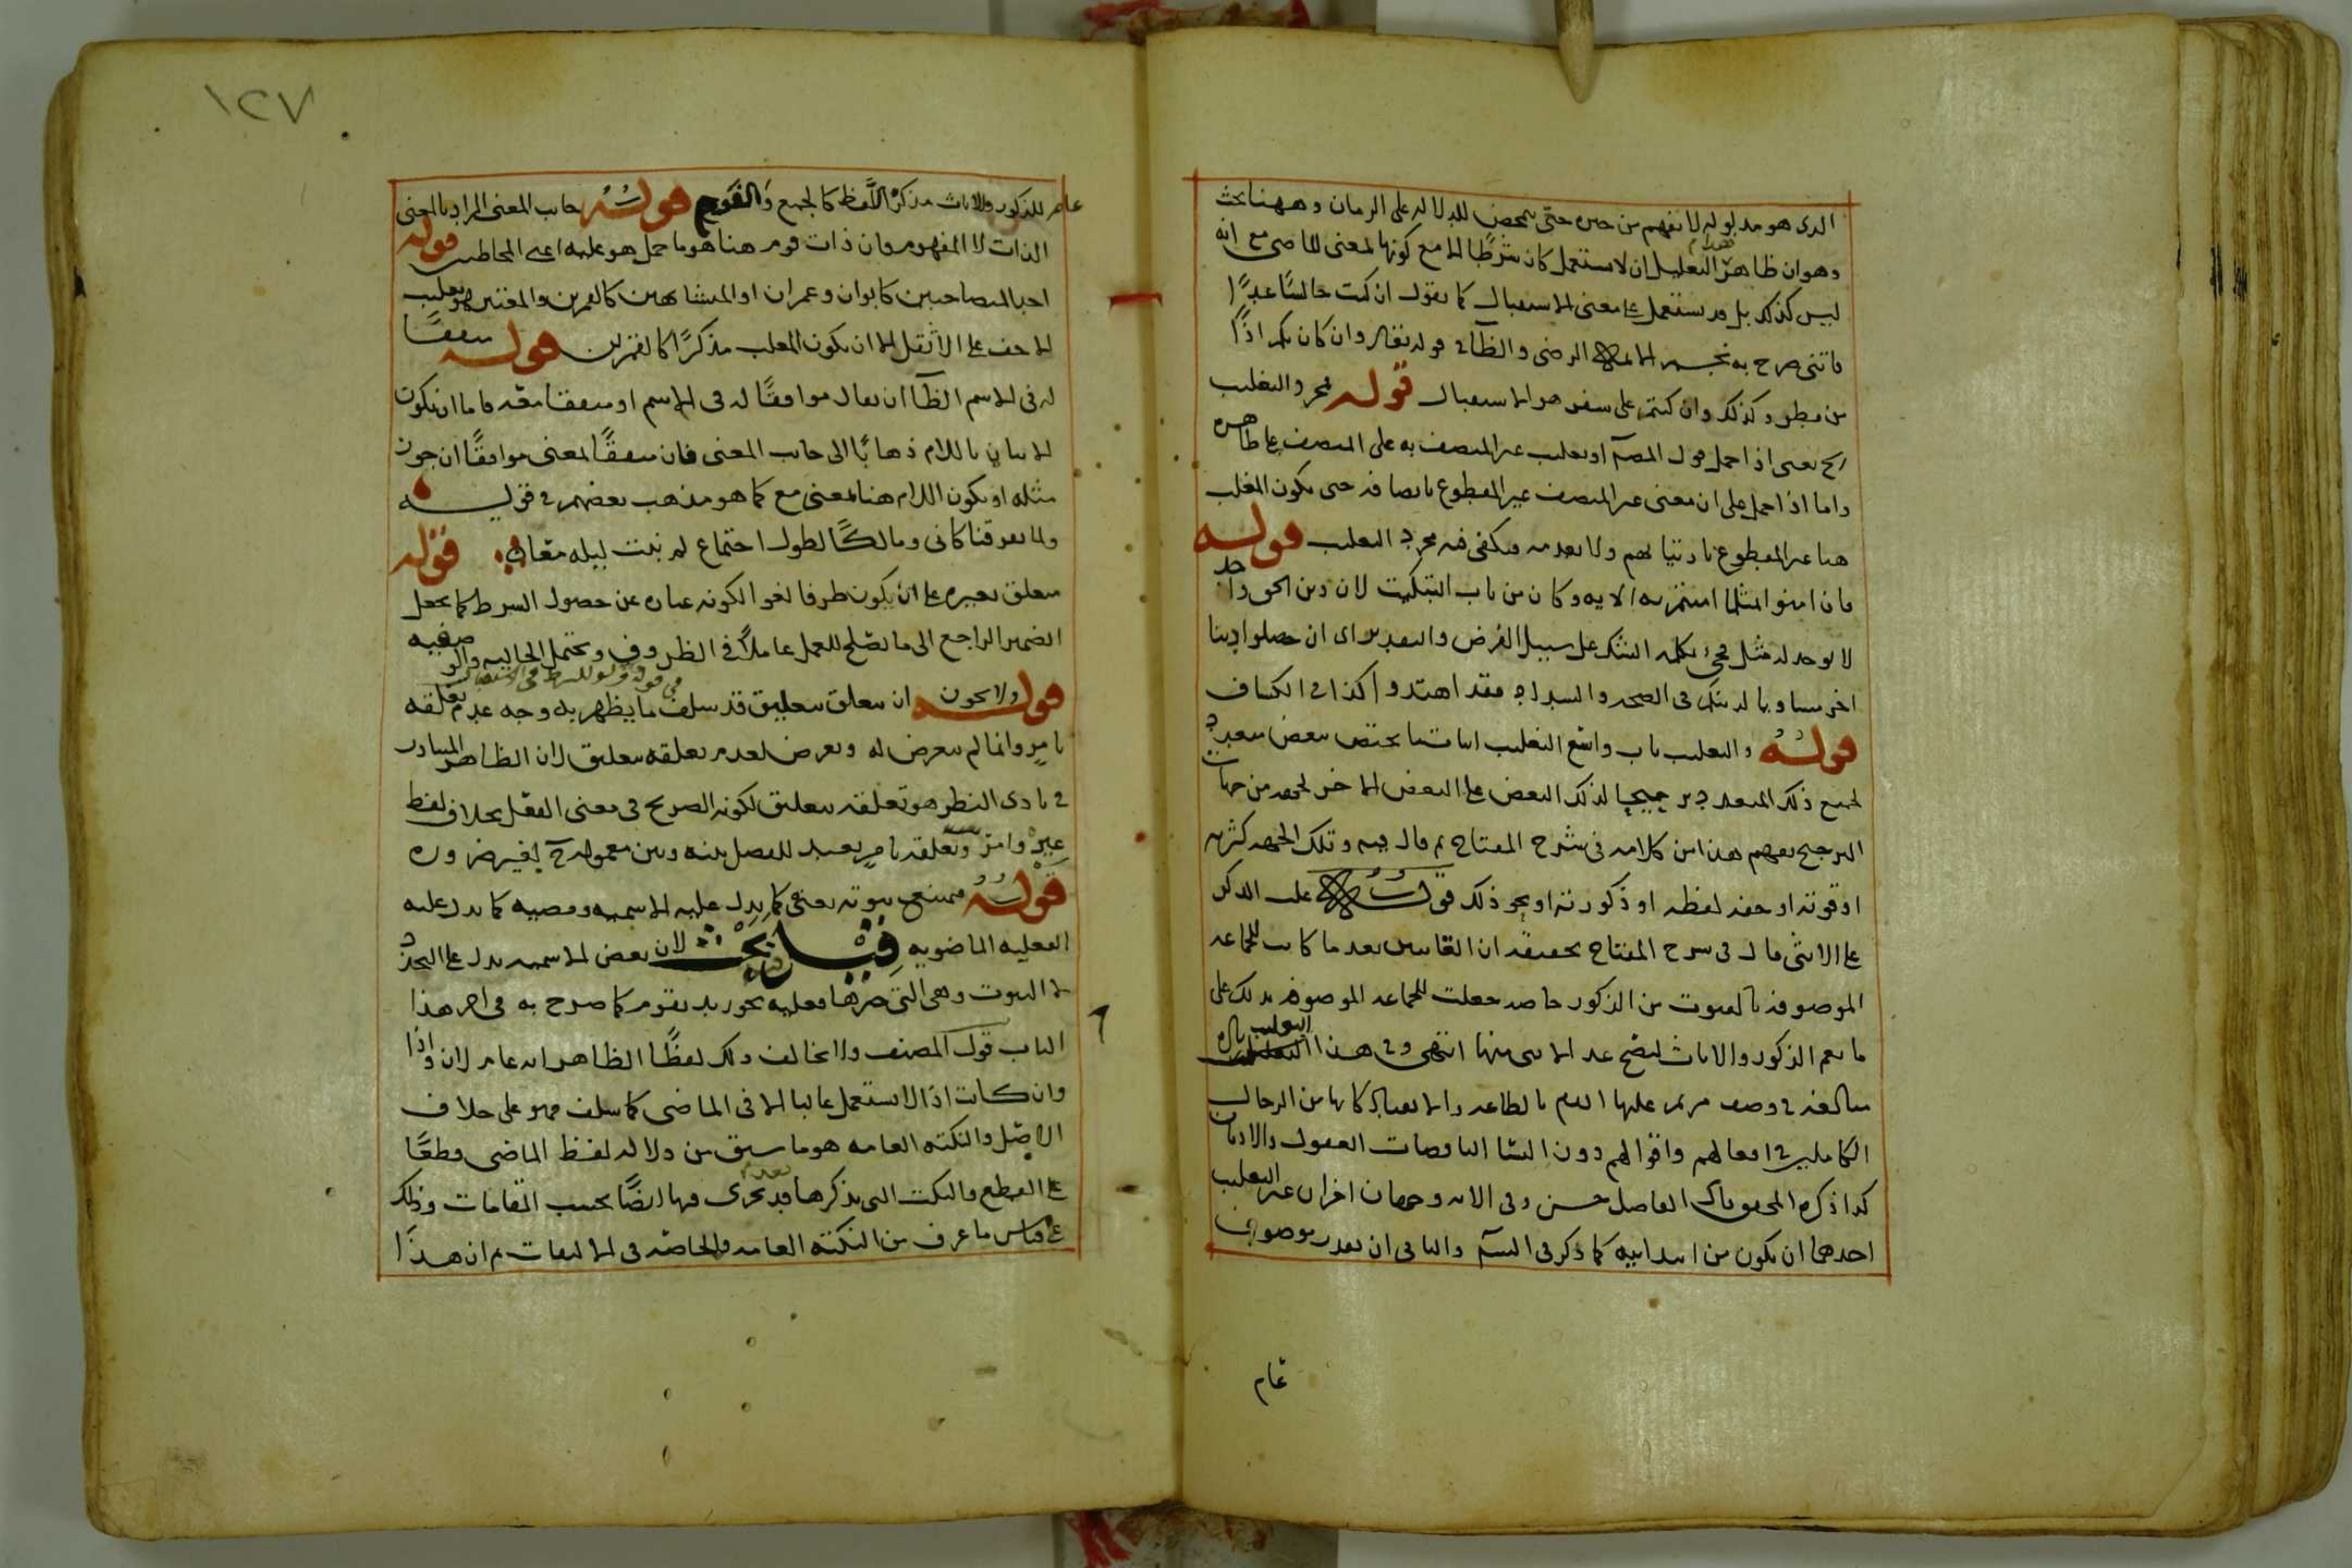 الذى هو مدلوله لا يفهم من حين حتى تمحض للدلالة على الزمان وههنا بحث
وهو ان ظاهر هذا التعليل ان لا يستعمل كان شرطا الا مع كونها لمعنى الماضى مع انه
ليس كذلك بل قد يستعمل على معنى الاستقبال كما تقول ان كنت جالسا غدا
فاتنى صرح به نجم الايمة الرضى والظاهر فى قوله تعالى وان كان بكم اذا
من مطر وكذلك وان كنتم على سفر هو الاستقبال قوله مجرد التغليب
الخ يعنى اذا حمل قول المصنف او تغليب غير المتصف به على المتصف على ظاهره
واما اذا حمل على ان معنى غير المتصف غير المقطوع باتصافه حتى يكون المغلب
هنا غير المقطوع بارتيابهم ولا بعدمه فيكفى فيه مجرد التغليب قوله
فان امنوا بمثل ما امنتم به الاية وكان من باب التبكيت لان دين الحق واحد
لا يوجد له مثل فجئ بكلمة الشك على سبيل الفرض والتقدير اى ان حصلوا دينا
اخر مساويا لدينكم فى الصحة والسداد فقد اهتدوا كذا فى الكشاف
قوله والتغليب باب واسع التغليب اثبات ما يختص ببعض متعدد
لجميع ذلك المتعدد ترجيحا لذلك البعض على البعض الاخر لجهة من جهات
الترجيح يفهم هذا من كلامه فى شرح المفتاح ثم قال فيه وتلك الجهة كثرته
او قوته او خفة لفظه او ذكورته او نحو ذلك قوله غلب الذكر
على الانثى قال فى شرح المفتاح تحقيقه ان القانتين بعد ما كانت للجماعة
الموصوفة بالقنوت من الذكور خاصة جعلت للجماعة الموصوفة بذلك على
ما يعم الذكور والاناث ليصح عد الانثى منها انتهى وفى هذا التغليب
مبالغة فى وصف مريم عليها السلام بالطاعة والانقياد كانها من الرجال
الكاملين فى افعالهم واقوالهم دون النسا الناقصات العقول والاديان
كذا ذكره المحقق الفاضل حسن وفى الاية وجهان اخران غير التغليب
احدهما ان يكون من ابتدائية كما ذكر فى الشرح والثانى ان يقدر موصوف
عام
١٢٧
عام للذكور والاناث مذكر اللفظ كالجمع والقوم قوله جانب المعنى المراد بالمعنى
الذات لا المفهوم فان ذات قوم هنا هو ما حمل هو عليه اعنى المخاطبين قوله
احد المتصاحبين كابوان وعمران او المتشابهين كالقمرين والمعتبر هو تغليب
الاخف على الاثقل الا ان يكون المغلب مذكرا كالقمرين قوله متفقا
له فى الاسم الظاهر ان يقال موافقا له فى الاسم او متفقا معه فاما ان يكون
الاتيان باللام ذهابا الى جانب المعنى فان متفقا لمعنى موافقا ان جوز
مثله او يكون اللام هنا لمعنى مع كما هو مذهب بعضهم فى قوله
ولما تفرقنا كانى ومالكا لطول اجتماع لم نبت ليلة معا قوله
متعلق بغيره على ان يكون ظرفا لغوا لكونه عبارة عن حصول الشرط كما يجعل
الضمير الراجع الى ما يصلح للعمل عاملا فى الظروف ويحتمل الحالية والوصفية
قوله ولا يجوز ان يتعلق بتعليق قد سلف ما يظهر به وجه عدم تعلقه
بامر وانما لم يتعرض له وتعرض لعدم تعلقه بتعليق لان الظاهر المتبادر
فى بادى النظر هو تعلقه بتعليق لكونه الصريح فى معنى الفعل بخلاف لفظ
غير وامر وتعلقه بامر بعيد للفصل بينه وبين معموله لغير ضرورة
قوله فيمتنع ثبوته يعنى كما يدل عليه الاسمية ومضيه كما يدل عليه
الفعلية الماضوية فيها بحث لان بعض الاسمية يدل على التجدد
لا الثبوت وهى التى خبرها فعلية نحو زيد يقوم كما صرح به فى اخر هذا
الباب قوله المصنف ولا يخالف ذلك لفظا الظاهر انه عام لان واذا
وان كانت اذا لا تستعمل غالبا الا فى الماضى كما سلف فهو على خلاف
الاصل والنكتة العامة هو ما سبق من دلالة لفظ الماضى قطعا
على القطع والنكت التى يذكرها بعد قد تجرى فيها ايضا بحسب المقامات وذلك
على قياس ما عرف من النكتة العامة والخاصة فى الالتفات ثم ان هذا